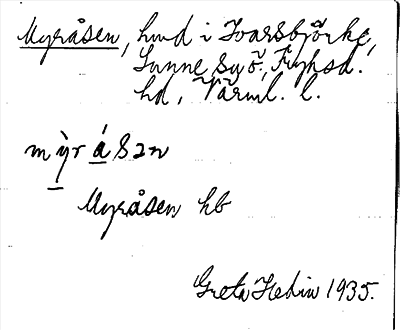 Myråsen, hmd i Ivarsbjörke,
Sunne syö., Fryksd.
hd, Värml. l.
mỳr ásən
Myråsen hb
Greta Hedin 1935.